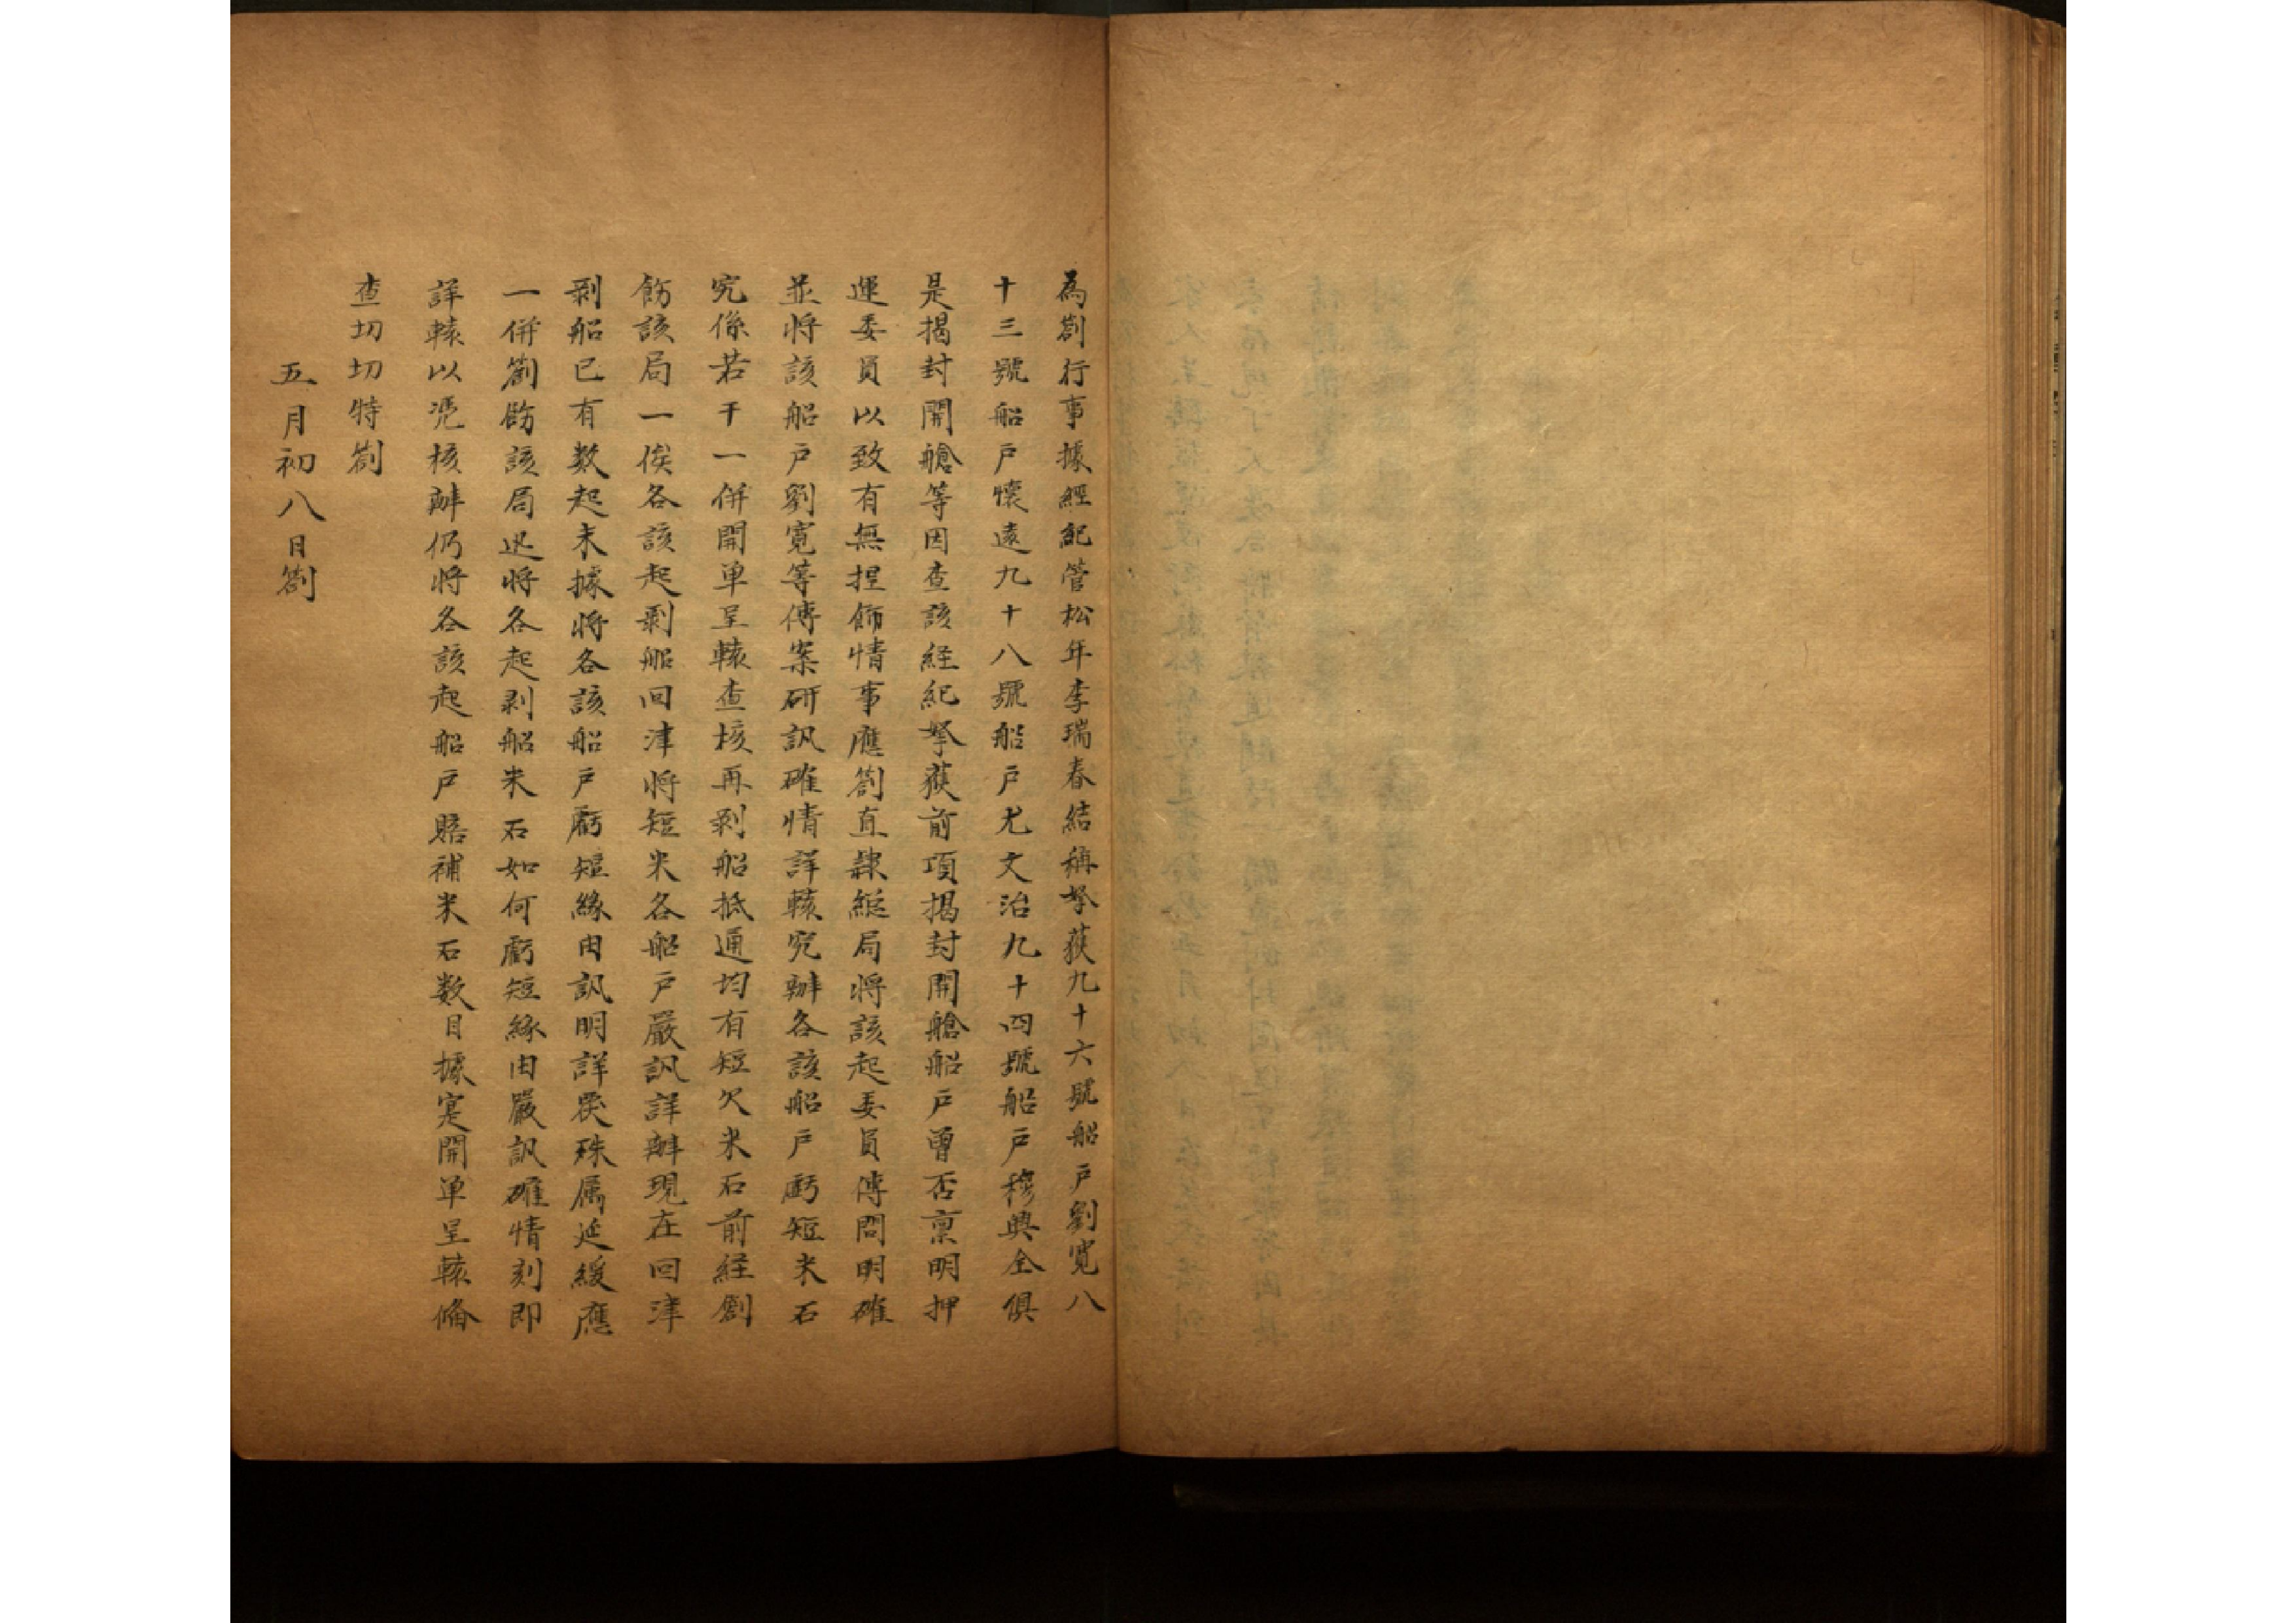 為劄行事據經紀管松年李瑞春結稱拏获九十六號船戶劉寬八
十三號船戶懷遠九十八號船戶尤文治九十四號船戶穆興全俱
是揭封開艙等因查該経紀拏獲前項揭封開艙船戶曾否禀明押
運委員以致有無捏飾情事應劄直隸總局將該起委員傳問明確
並将該船戶劉寬等傳案研訊確情詳轅究辦各該船戶虧短米石
究係若干一併開单呈轅查核再剥船抵通均有短欠米石前経劄
飭該局一俟各該起剥船回津将短米各船戶嚴訊詳辦現在回津
剥船已有数起未據将各該船戶虧短緣由訊明詳覆殊属延緩應
一併劄飭該局迅将各起剥船米石如何虧短緣由嚴訊確情刻即
詳轅以凭核辦仍将各該起船戶賠補米石数目據寔開单呈轅俻
查切切特劄
五月初八日劄